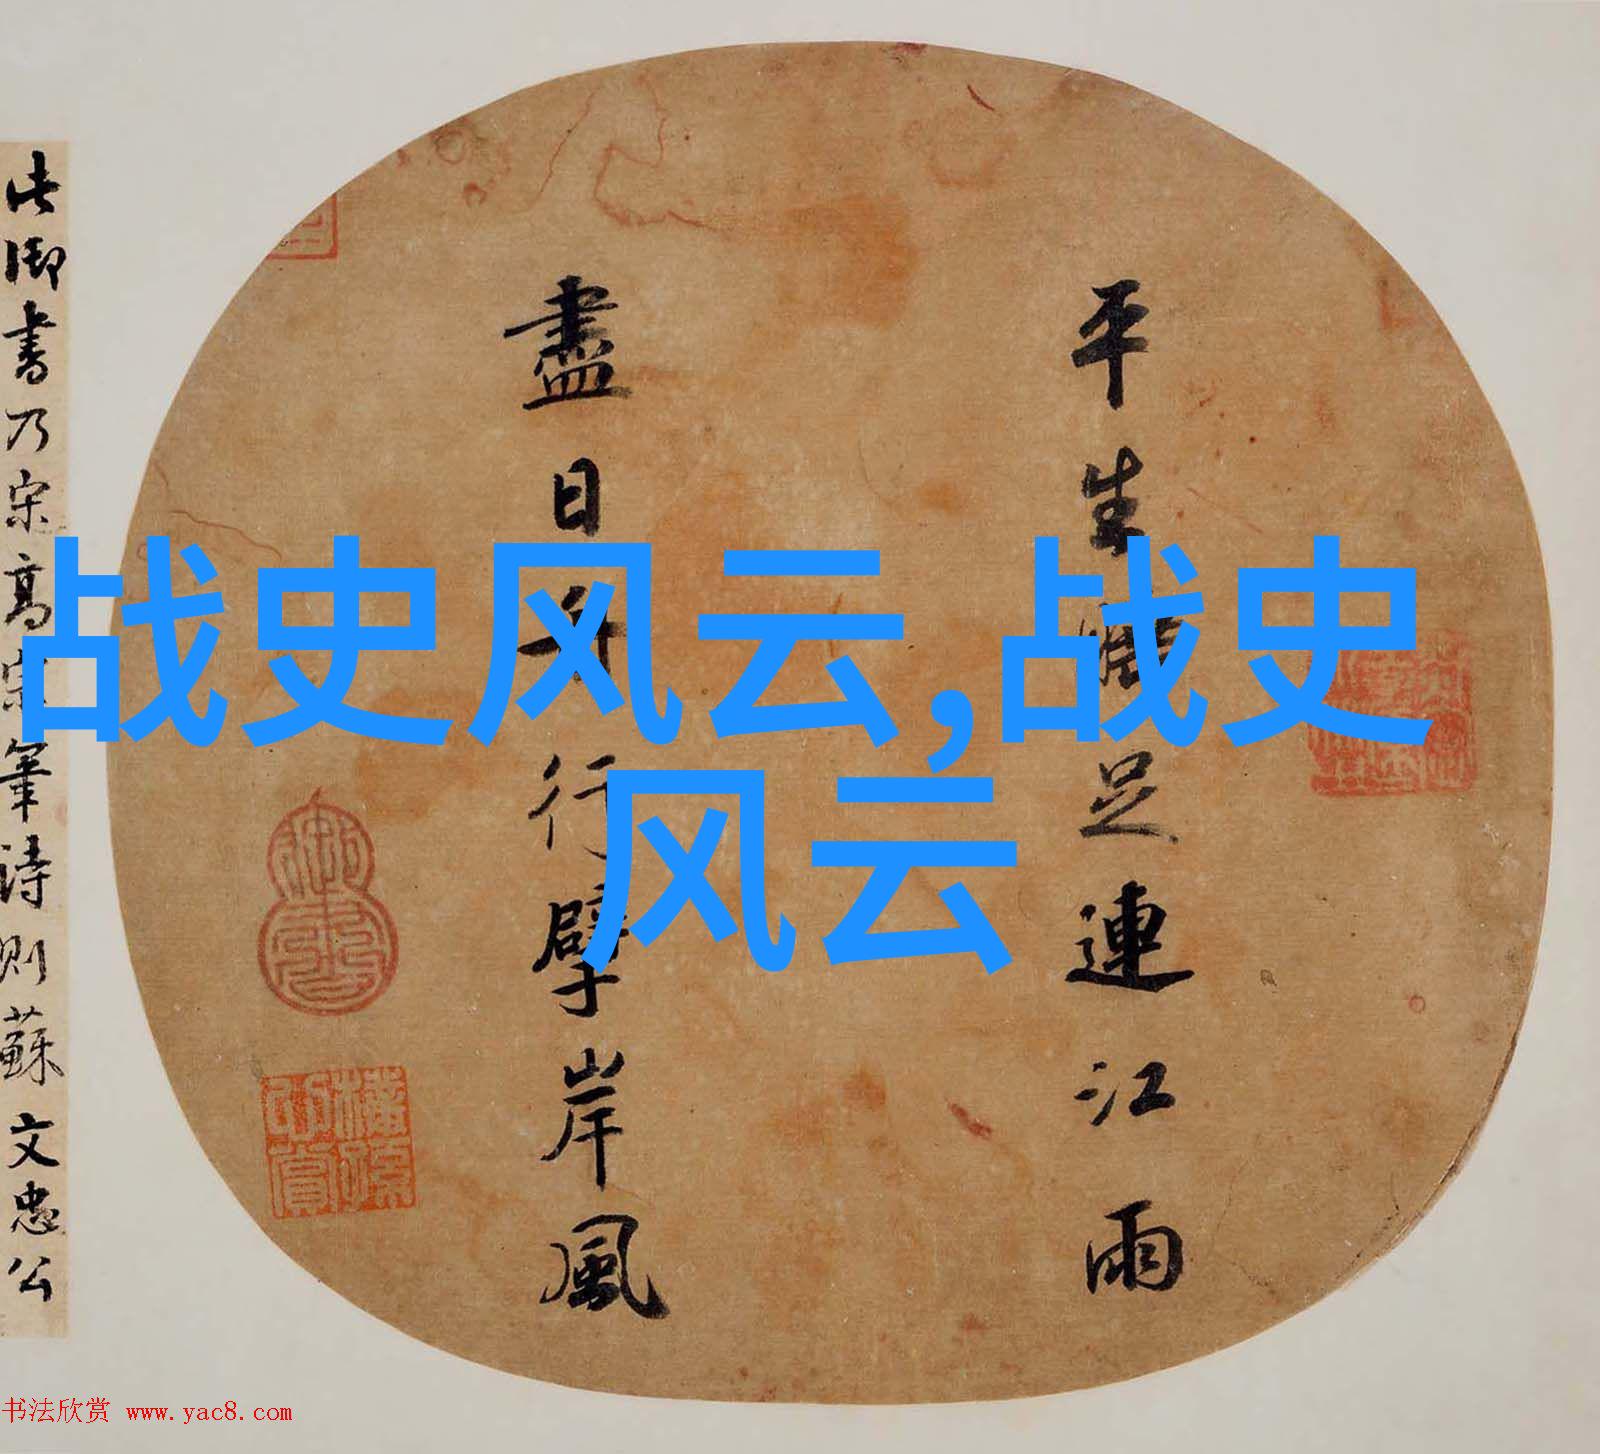 战史风云,战史
风云
平生睡足連江雨
盡日舟行擘岸風
此御書乃宋高宗筆詩則蘇文忠公
书法欣赏 www.yac8.com